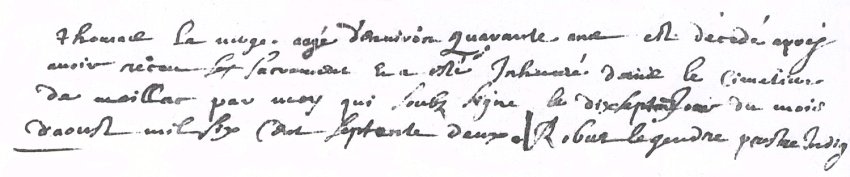 Thomas la nuge aagé d'environ quarante ans est décédé apres
avoir receu les sacrement Et a esté Inhumé dans le Cimetiere
de meillac par moy qui soubz signe le dix septm jour du mois
d'aoust mil six Cent septente deux. Robert legendre prestre Indig